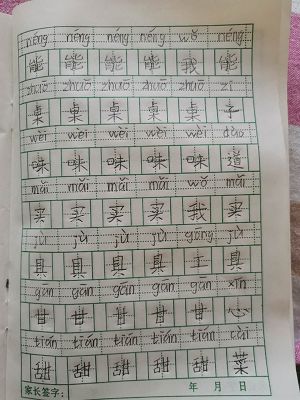 néng néng néng néng wǒ néng
能 能 能 能 我 能
zhuō zhuō zhuō zhuō zhuō zǐ
桌 桌 桌 桌 桌 子
wèi wèi wèi wèi wèi dào
味 味 味 味 味 道
mǎi mǎi mǎi mǎi wǒ mǎi
买 买 买 买 我 买
jù jù jù jù gōng jù
具 具 具 具 工 具
gān gān gān gān gān xīn
甘 甘 甘 甘 甘 心
tián tián tián tián tián cài
甜 甜 甜 甜 甜 菜
家长签字： 年 月 日